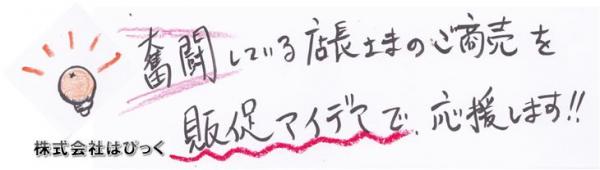 奮闘している店長さまのご商売を
販促アイデアで、応援します!!
株式会社はぴっく